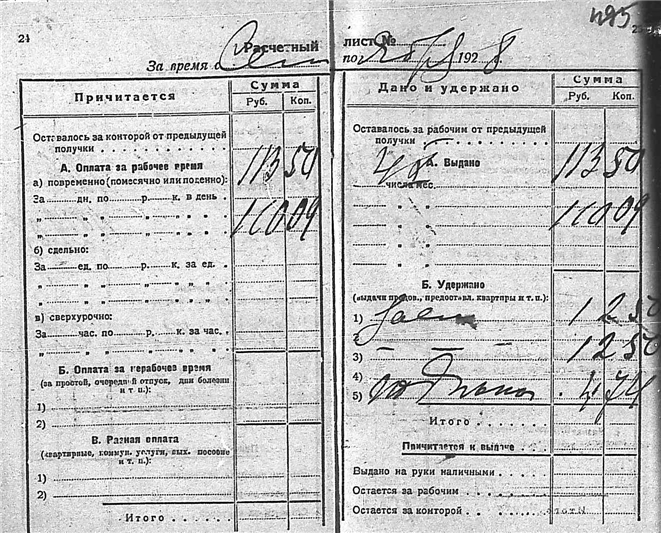 24
Расчетный
За время с Сен
Причитается
Сумма
Руб. Коп.
Оставалось за конторой от предыдущей
получки
113 50
А. Оплата за рабочее время
а) повременно (помесячно или поденно):
За дн. по р. к. в день
„ „ „ „ „
110 09
„ „ „ „ „
б) сдельно:
За ед. по р. к. за ед.
„ „ „ „ „
„ „ „ „ „
в) сверхурочно:
За час. по р. к. за час.
„ „ „ „ „
Б. Оплата за нерабочее время
(за простой, очередной отпуск, дни болезни
и т. п.):
1)
2)
В. Разная оплата
(квартирные, коммун. услуги, вых. пособие
и т. п.):
1)
2)
Итого
495
25
лист №
по 192 8
Дано и удержано
Сумма
Руб. Коп.
Оставалось за рабочим от предыдущей
получки
А. Выдано
113 50
числа мес.
„ „
110 09
„ „
„ „
„ „
Б. Удержано
(выдачи продов., предоставл. квартиры и т. п.):
1) Заем 12 50
2)
3) 12 50
4)
5) 4 74
Итого
Причитается к выдаче
Выдано на руки наличными
Остается за рабочим
Остается за конторой